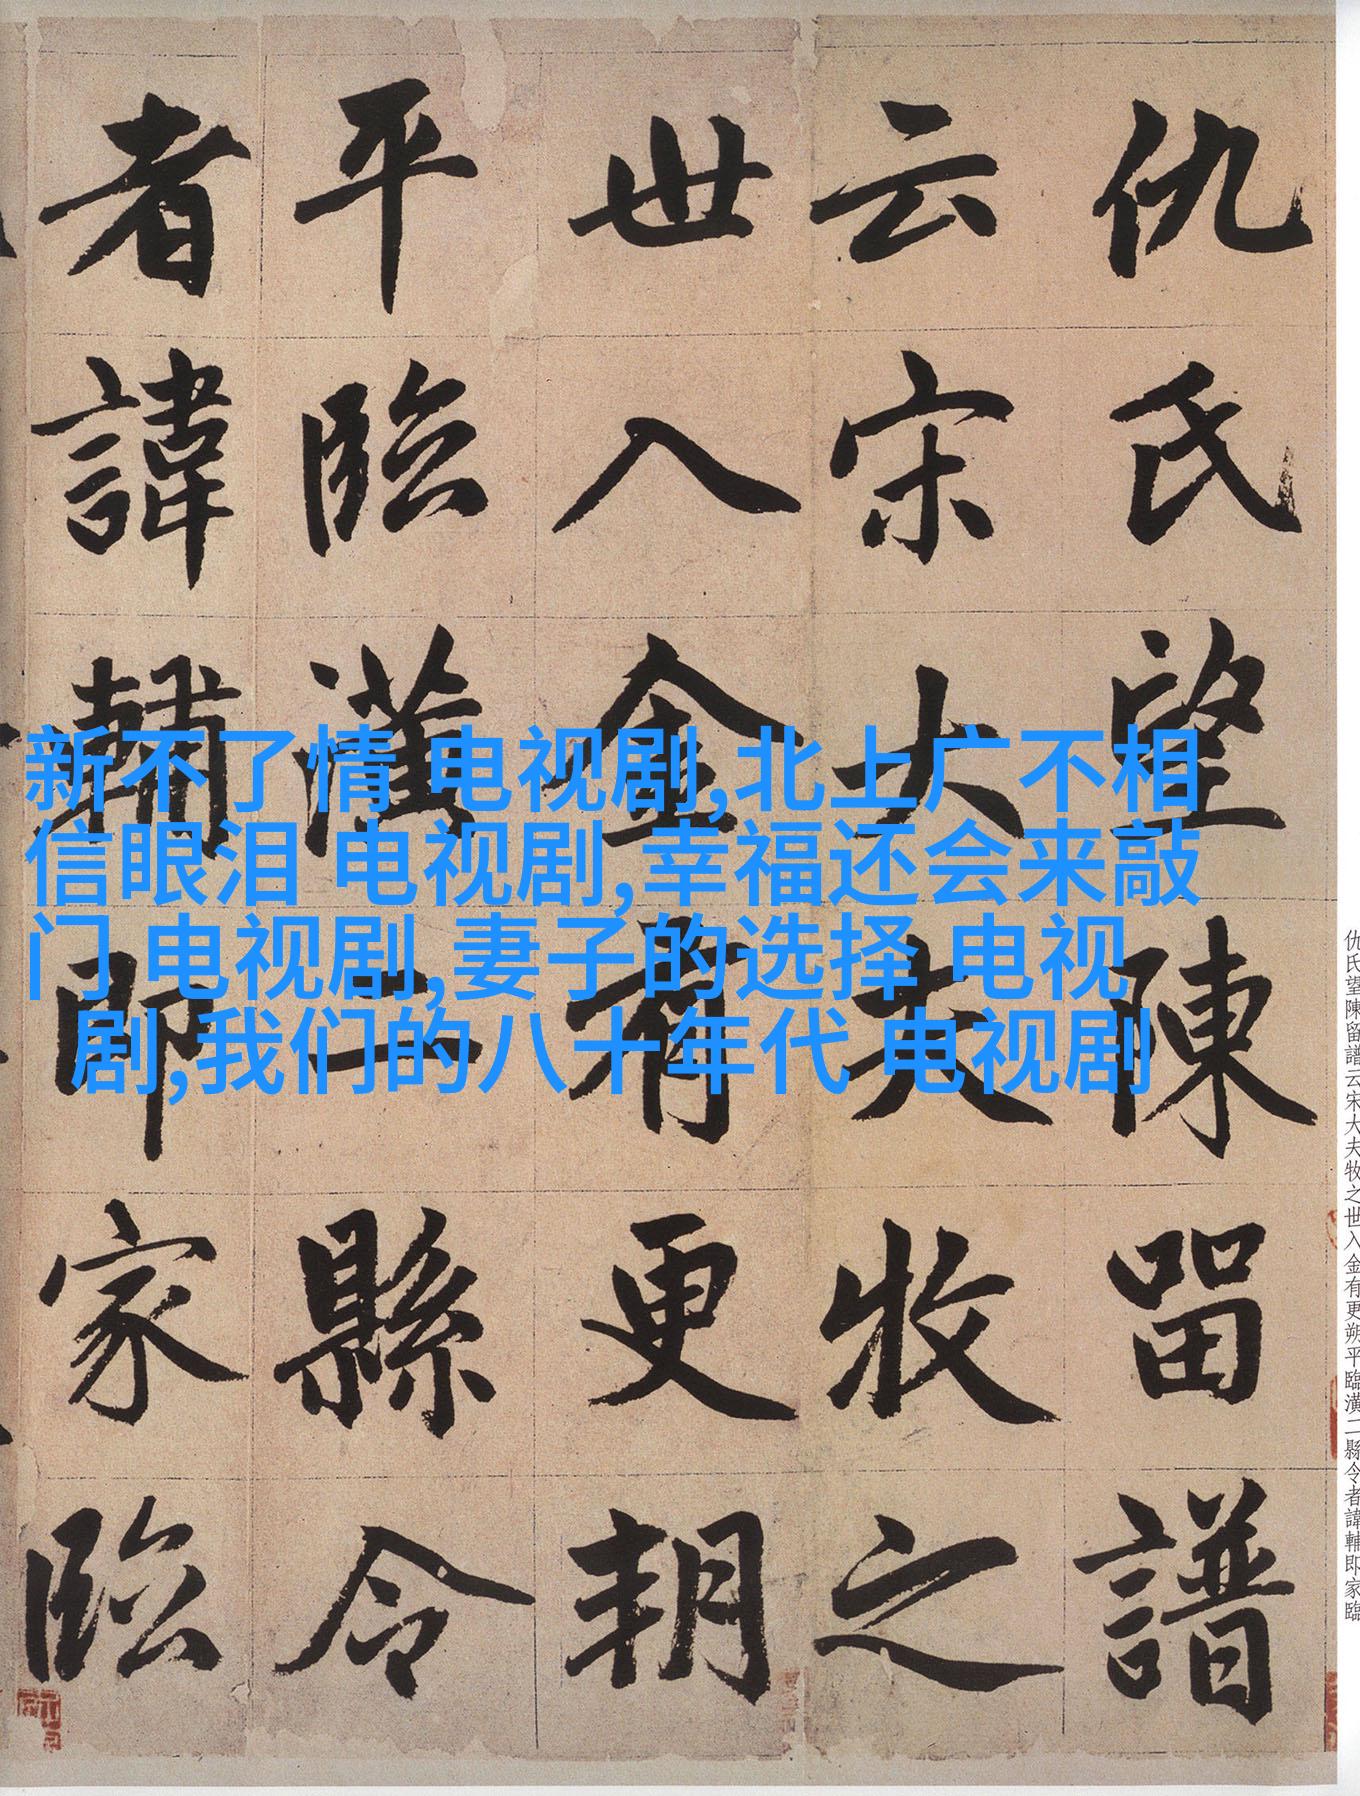 仇氏望陳留譜
云宋大夫牧之
世入金有更朔
平臨潢二縣令
者諱輔即家臨
新不了情 电视剧,北上广不相
信眼泪 电视剧,幸福还会来敲
门 电视剧,妻子的选择 电视
剧,我们的八十年代 电视剧
仇氏望陳留譜云宋大夫牧之世入金有更朔平臨潢二縣令者諱輔即家臨